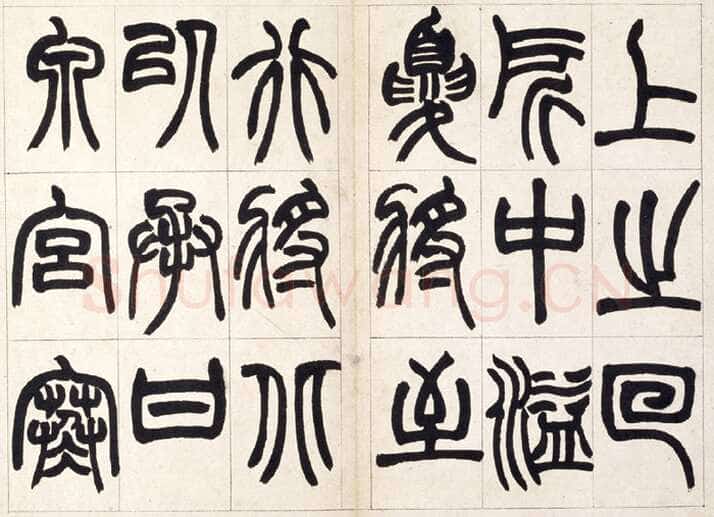 上之回
所中溢
夏將至
行將北
以承甘
泉宮寒
Shufawang.CN